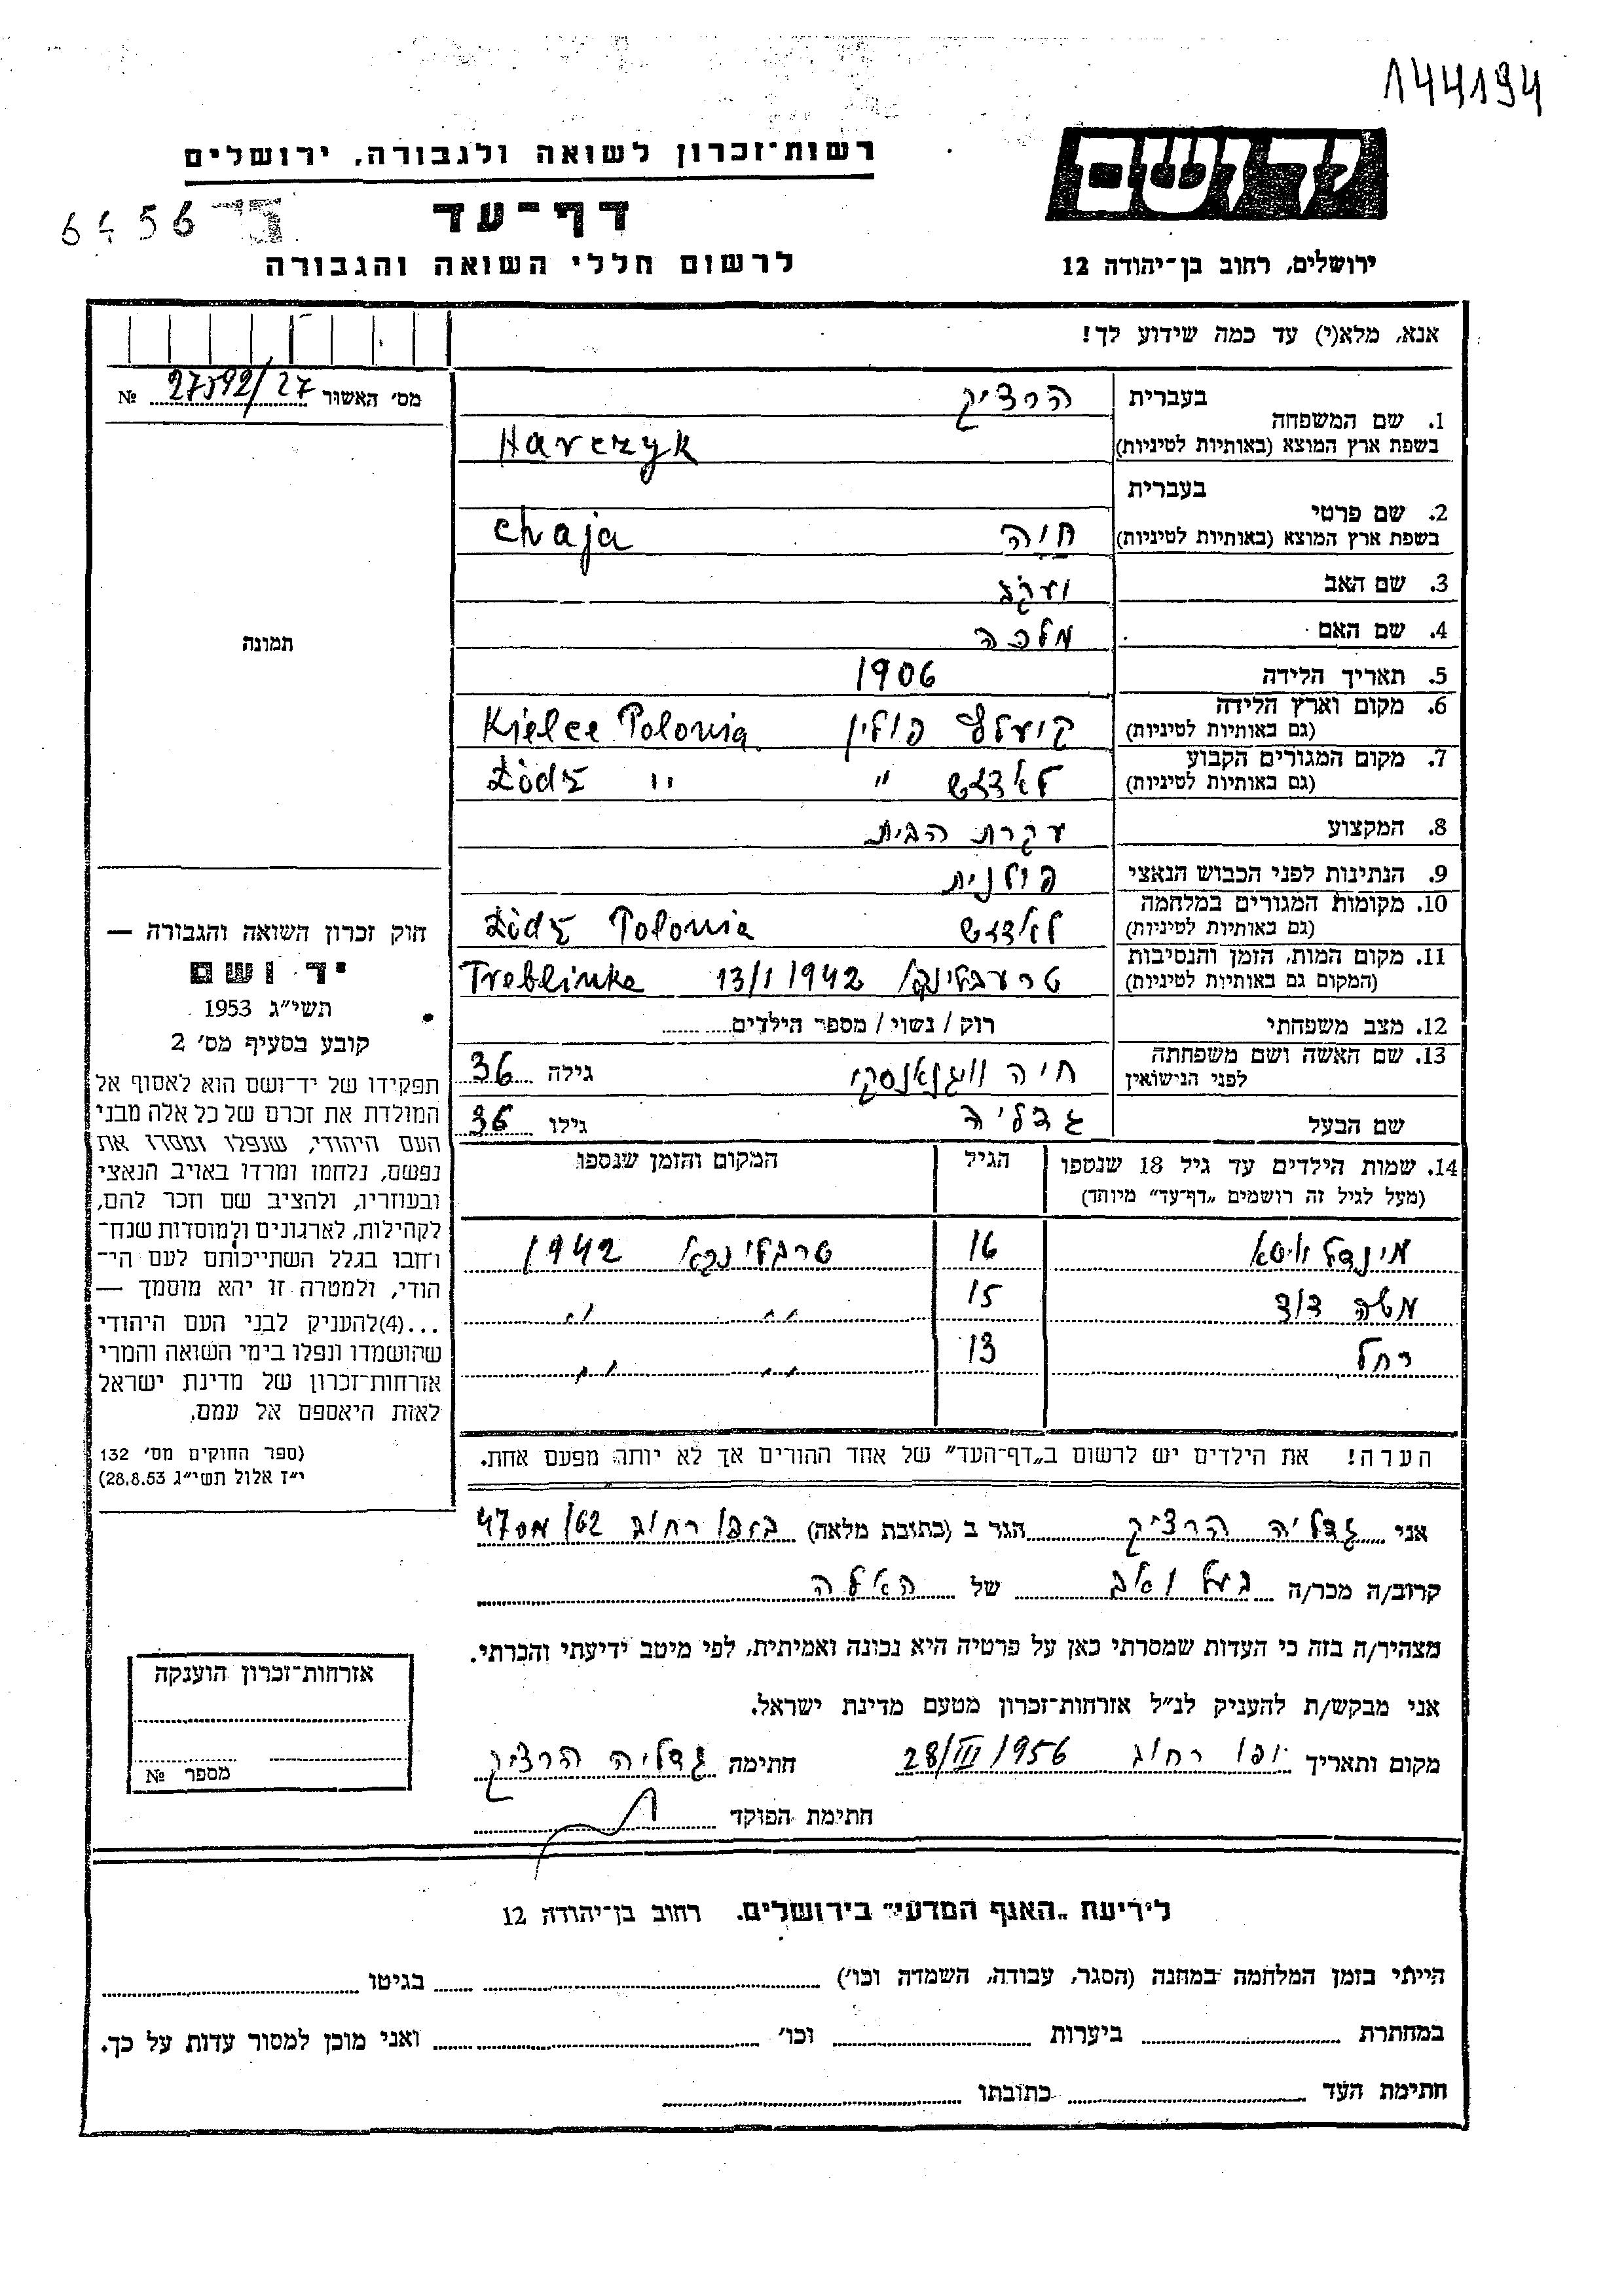 144194
רשות־זכרון לשואה ולגבורה, ירושלים
יד ושם
דף־עד
6456
לרשום חללי השואה והגבורה
ירושלים, רחוב בן־יהודה 12
אנא, מלא(י) עד כמה שידוע לך!
מס׳ האשור № 27592/27
תמונה
1. שם המשפחה
בעברית הרציק
בשפת ארץ המוצא (באותיות לטיניות) Harczyk
2. שם פרטי
בעברית
בשפת ארץ המוצא (באותיות לטיניות) חיה Chaja
3. שם האב יעקב
4. שם האם מלכה
5. תאריך הלידה 1906
6. מקום וארץ הלידה
(גם באותיות לטיניות) קיעלץ פולין Kielce Polonia
7. מקום המגורים הקבוע
(גם באותיות לטיניות) לאדזש " Łódź "
8. המקצוע עקרת הבית
9. הנתינות לפני הכבוש הנאצי פולנית
10. מקומות המגורים במלחמה
(גם באותיות לטיניות) לאדזש Łódź Polonia
11. מקום המות, הזמן והנסיבות
(המקום גם באותיות לטיניות) טרעבלינקא 13/1/1942 Treblinka
12. מצב משפחתי רוק / נשוי / מספר הילדים
13. שם האשה ושם משפחתה
לפני הנישואין חיה גילה 36
שם הבעל גדליה גילו 36
14. שמות הילדים עד גיל 18 שנספו הגיל המקום והזמן שנספו
(מעל לגיל זה רושמים „דף־עד” מיוחד)
מינדל 16 טרבלינקא 1942
משה דוד 15 " "
רחל 13 " "
הערה! את הילדים יש לרשום ב„דף־העד” של אחד ההורים אך לא יותר מפעם אחת.
חוק זכרון השואה והגבורה —
יד ושם
תשי״ג 1953
קובע בסעיף מס׳ 2
תפקידו של יד־ושם הוא לאסוף אל
המולדת את זכרם של כל אלה מבני
העם היהודי, שנפלו ומסרו את
נפשם, נלחמו ומרדו באויב הנאצי
ובעוזריו, ולהציב שם וזכר להם,
לקהילות, לארגונים ולמוסדות שנח־
רבו בגלל השתייכותם לעם הי־
הודי, ולמטרה זו יהא מוסמך —
...(4)להעניק לבני העם היהודי
שהושמדו ונפלו בימי השואה והמרי
אזרחות־זכרון של מדינת ישראל
לאות היאספם אל עמם.
(ספר החוקים מס׳ 132
י״ז אלול תשי״ג 28.8.53)
אני גדליה הרציק הגר ב (כתובת מלאה) ביפו רחוב 62 מס 47
קרוב/ה מכר/ה בעל ואב של האלה
מצהיר/ה בזה כי העדות שמסרתי כאן על פרטיה היא נכונה ואמיתית, לפי מיטב ידיעתי והכרתי.
אני מבקש/ת להעניק לנ״ל אזרחות־זכרון מטעם מדינת ישראל.
מקום ותאריך יפו רחוב 28/III/1956 חתימה גדליה הרציק
חתימת הפוקד
אזרחות־זכרון הוענקה
מספר №
לידיעת „האגף המדעי” בירושלים. רחוב בן־יהודה 12
הייתי בזמן המלחמה במחנה (הסגר, עבודה, השמדה וכו׳) בגיטו
במחתרת ביערות וכו׳ ואני מוכן למסור עדות על כך.
חתימת העד כתובתו